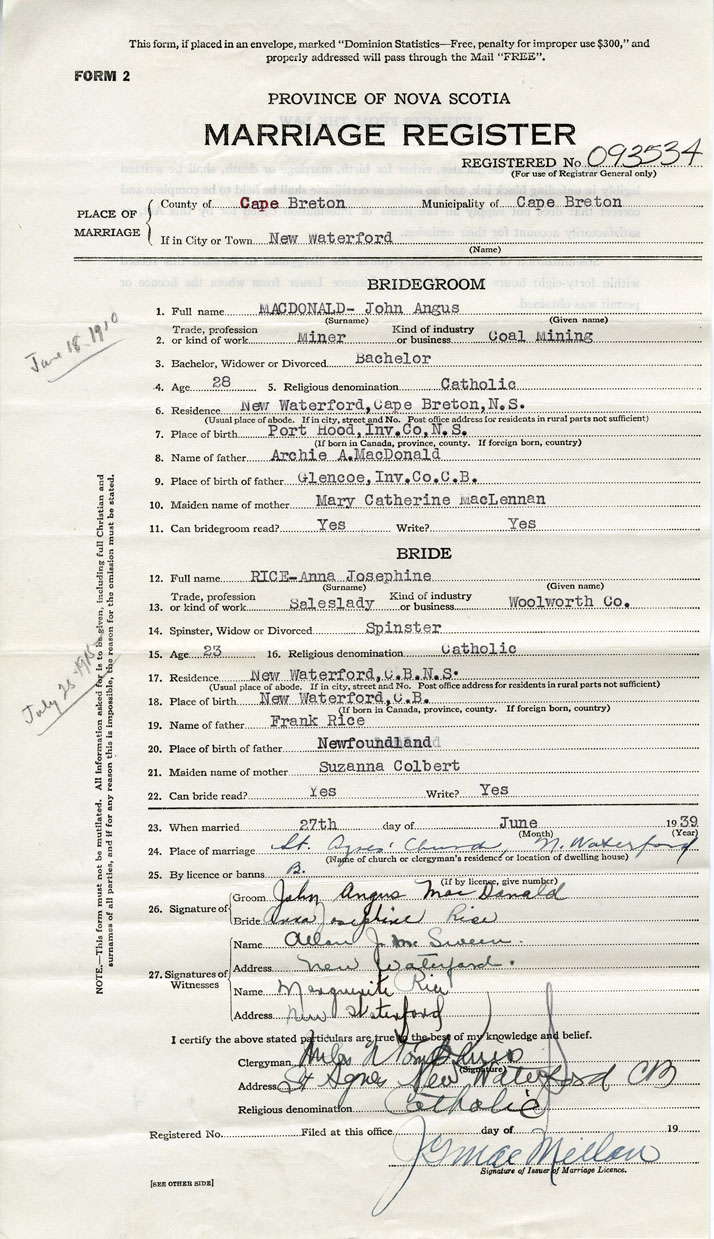 This form, if placed in an envelope, marked "Dominion Statistics—Free, penalty for improper use $300," and
properly addressed will pass through the Mail "FREE".
FORM 2
PROVINCE OF NOVA SCOTIA
MARRIAGE REGISTER
REGISTERED No. 093534
(For use of Registrar General only)
PLACE OF MARRIAGE
County of Cape Breton Municipality of Cape Breton
If in City or Town New Waterford
(Name)
BRIDEGROOM
June 18-1910
1. Full name MACDONALD- John Angus
(Surname) (Given name)
2. Trade, profession or kind of work Miner Kind of industry or business Coal Mining
3. Bachelor, Widower or Divorced Bachelor
4. Age 28 5. Religious denomination Catholic
6. Residence New Waterford,Cape Breton,N.S.
(Usual place of abode. If in city, street and No. Post office address for residents in rural parts not sufficient)
7. Place of birth Port Hood,Inv.Co,N.S.
(If born in Canada, province, county. If foreign born, country)
8. Name of father Archie A.MacDonald
9. Place of birth of father Glencoe,Inv.Co.C.B.
10. Maiden name of mother Mary Catherine MacLennan
11. Can bridegroom read? Yes Write? Yes
BRIDE
12. Full name RICE-Anna Josephine
(Surname) (Given name)
13. Trade, profession or kind of work Saleslady Kind of industry or business Woolworth Co.
14. Spinster, Widow or Divorced Spinster
15. Age 23 16. Religious denomination Catholic
July 25-1915
17. Residence New Waterford,C.B.N.S.
(Usual place of abode. If in city, street and No. Post office address for residents in rural parts not sufficient)
18. Place of birth New Waterford,C.B.
(If born in Canada, province, county. If foreign born, country)
19. Name of father Frank Rice
20. Place of birth of father Newfoundland
21. Maiden name of mother Suzanna Colbert
22. Can bride read? Yes Write? Yes
23. When married 27th day of June 1939
(Month) (Year)
24. Place of marriage St. Agnes' Church, N. Waterford
(Name of church or clergyman's residence or location of dwelling house)
25. By licence or banns B.
(if by licence, give number)
26. Signature of
Groom John Angus MacDonald
Bride Anna Josephine Rice
27. Signatures of Witnesses
Name Allan J. Mc Sween.
Address New Waterford.
Name Marguerite Rice
Address New Waterford
I certify the above stated particulars are true to the best of my knowledge and belief.
Clergyman
(Signature)
Address St Agnes New Waterford CB
Religious denomination Catholic
Registered No. Filed at this office day of 19
J G MacMillan
Signature of Issuer of Marriage Licence.
[SEE OTHER SIDE]
NOTE.—This form must not be mutilated. All Information asked for is to be given, including full Christian and
surnames of all parties, and if for any reason this is impossible, the reason for the omission must be stated.